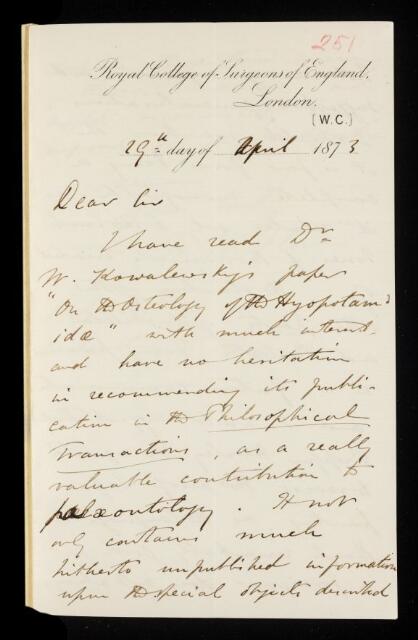 251
Royal College of Surgeons of England,
London.
(W.C.)
29th day of April 1873
Dear Sir
I have read Dr
W. Kowalewsky's paper
"On the Osteology of the Hyopotam
idæ" with much interest
and have no hesitation
in recommending its publi-
cation in the Philosophical
Transactions, as a really
valuable contribution to
palæontology. It not
only contains much
hitherto unpublished information
upon the special objects described